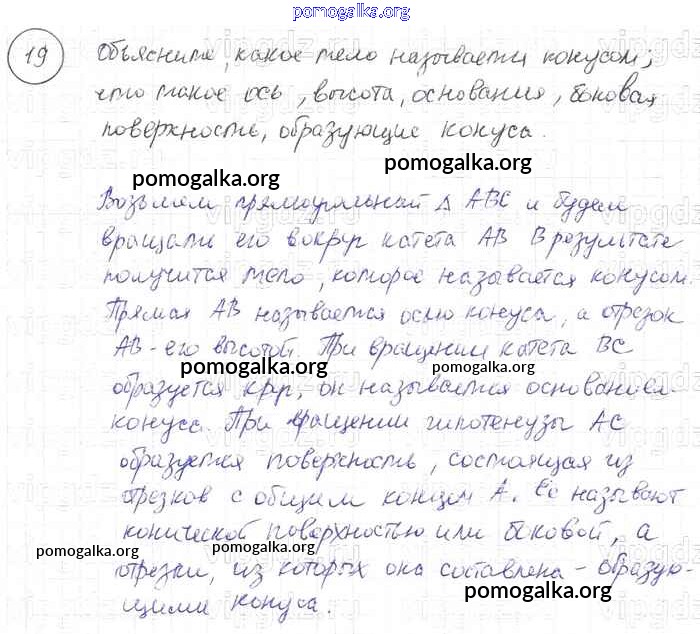 pomogalka.org
19 Объясните, какое тело называется конусом;
что такое ось, высота, основание, боковая
поверхность, образующие конуса.
pomogalka.org
pomogalka.org
Возьмем прямоугольный Δ ABC и будем
вращать его вокруг катета AB В результате
получится тело, которое называется конусом.
Прямая AB называется осью конуса, а отрезок
AB - его высотой. При вращении катета BC
pomogalka.org
образуется круг, он называется основанием
конуса. При вращении гипотенузы AC
образуется поверхность, состоящая из
отрезков с общим концом A. Её называют
конической поверхностью или боковой, а
pomogalka.org
pomogalka.org
отрезки, из которых она составлена - образую-
pomogalka.org
щими конуса.